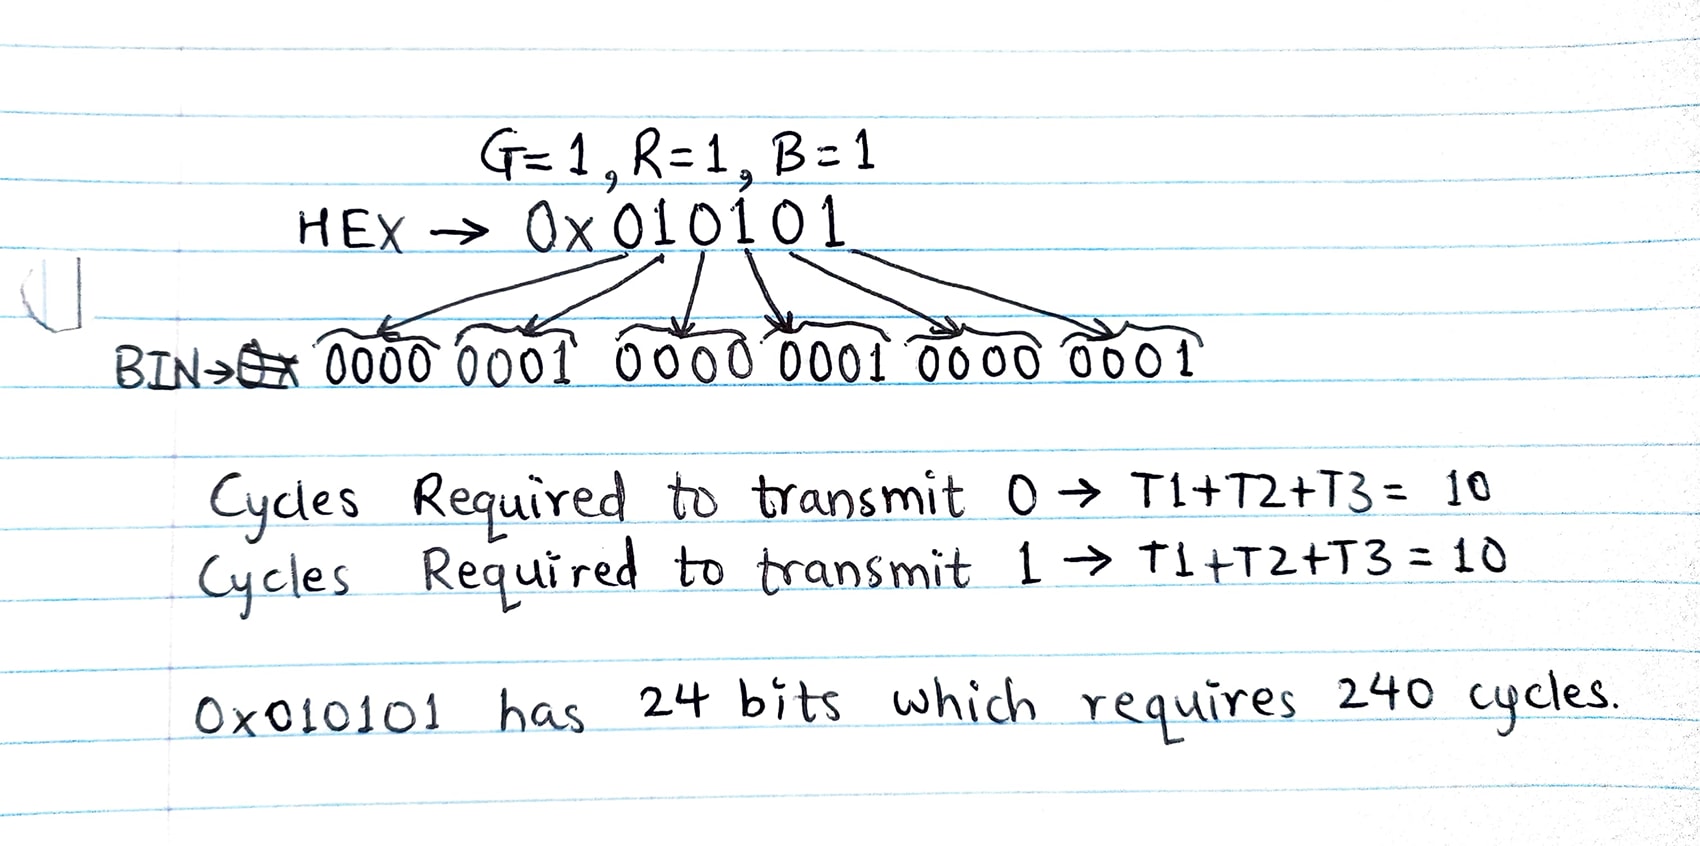 G=1, R=1, B=1
HEX → 0x010101
BIN→ 0000 0001 0000 0001 0000 0001
Cycles Required to transmit 0 → T1+T2+T3= 10
Cycles Required to transmit 1 → T1+T2+T3 = 10
0x010101 has 24 bits which requires 240 cycles.